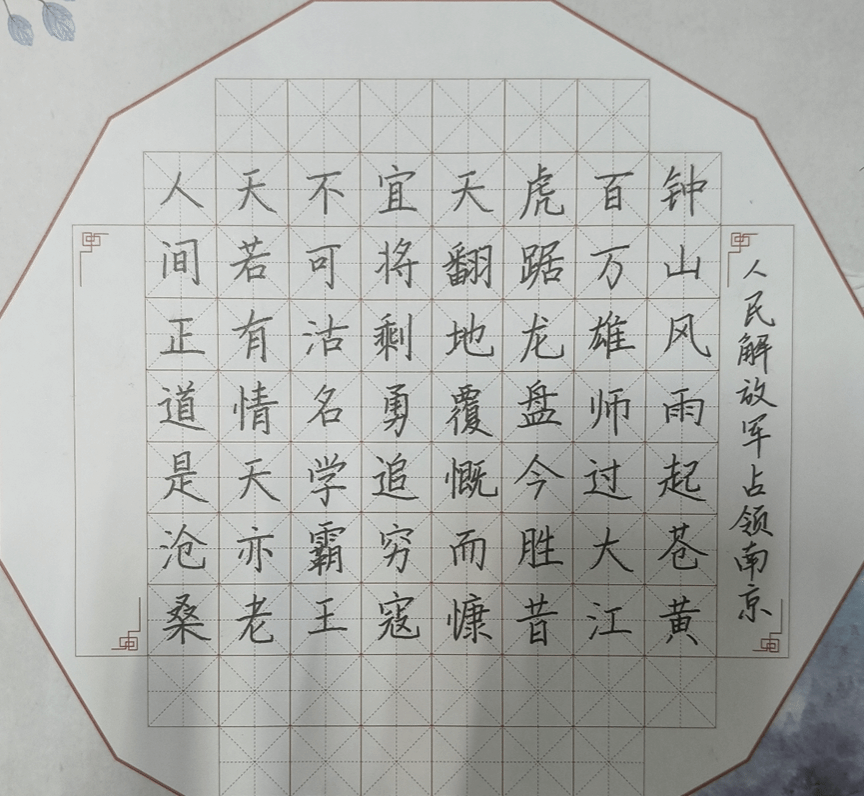 人民解放军占领南京
钟山风雨起苍黄
百万雄师过大江
虎踞龙盘今胜昔
天翻地覆慨而慷
宜将剩勇追穷寇
不可沽名学霸王
天若有情天亦老
人间正道是沧桑